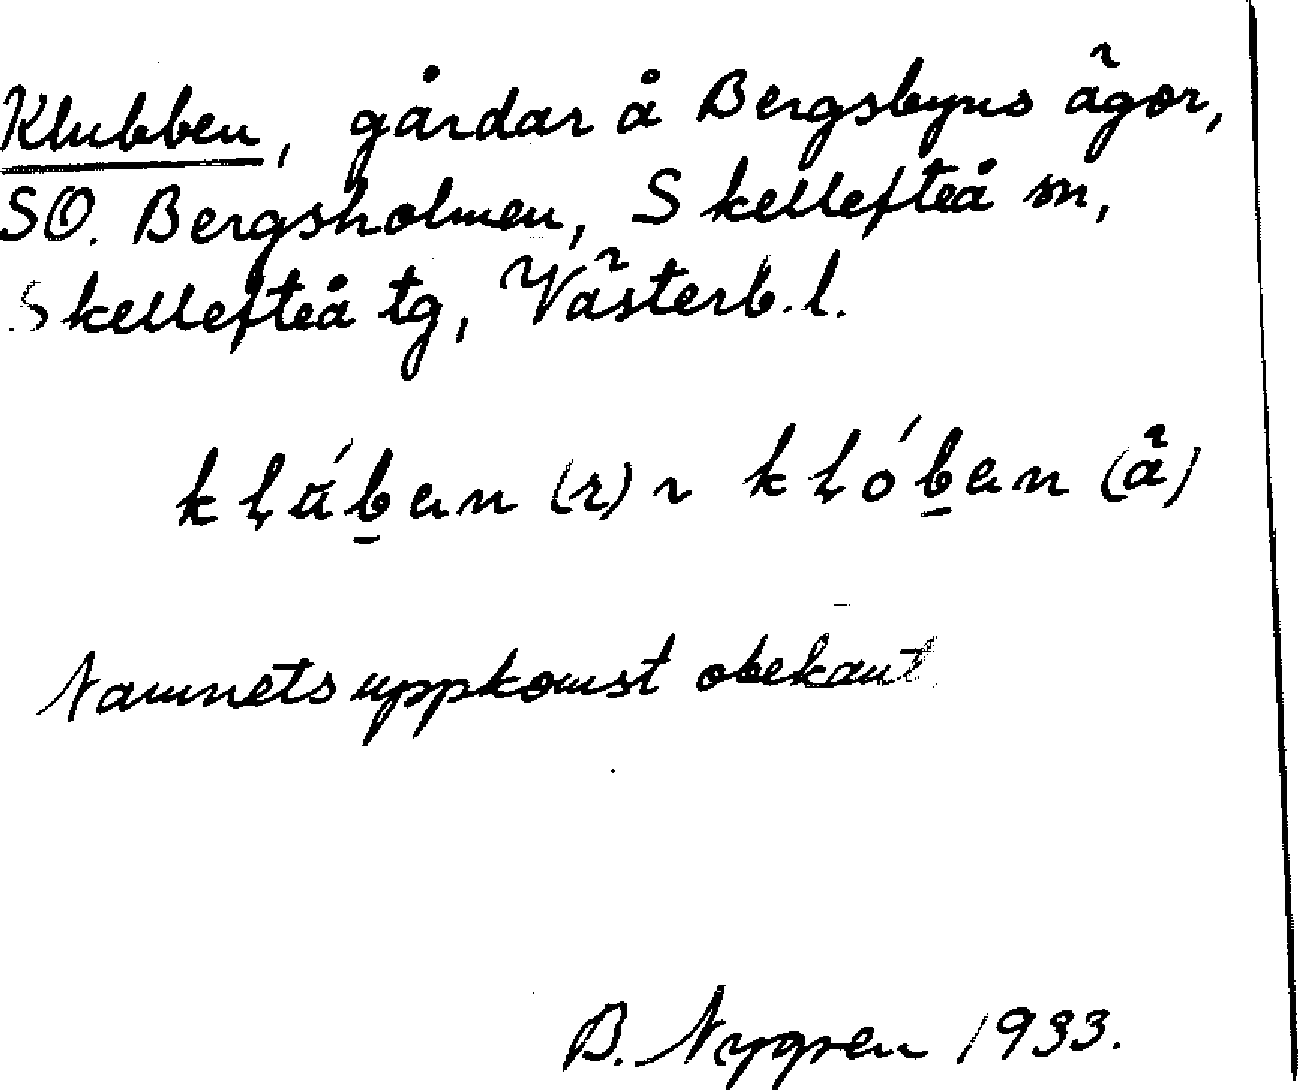 Klubben, gårdar å Bergsbyns ägor,
SO. Bergsholmen, Skellefteå sn,
Skellefteå tg, Västerb. l.
kḷúb̲an (r) ~ kḷób̲an (ä)
Namnets uppkomst obekant
B. Nygren 1933.